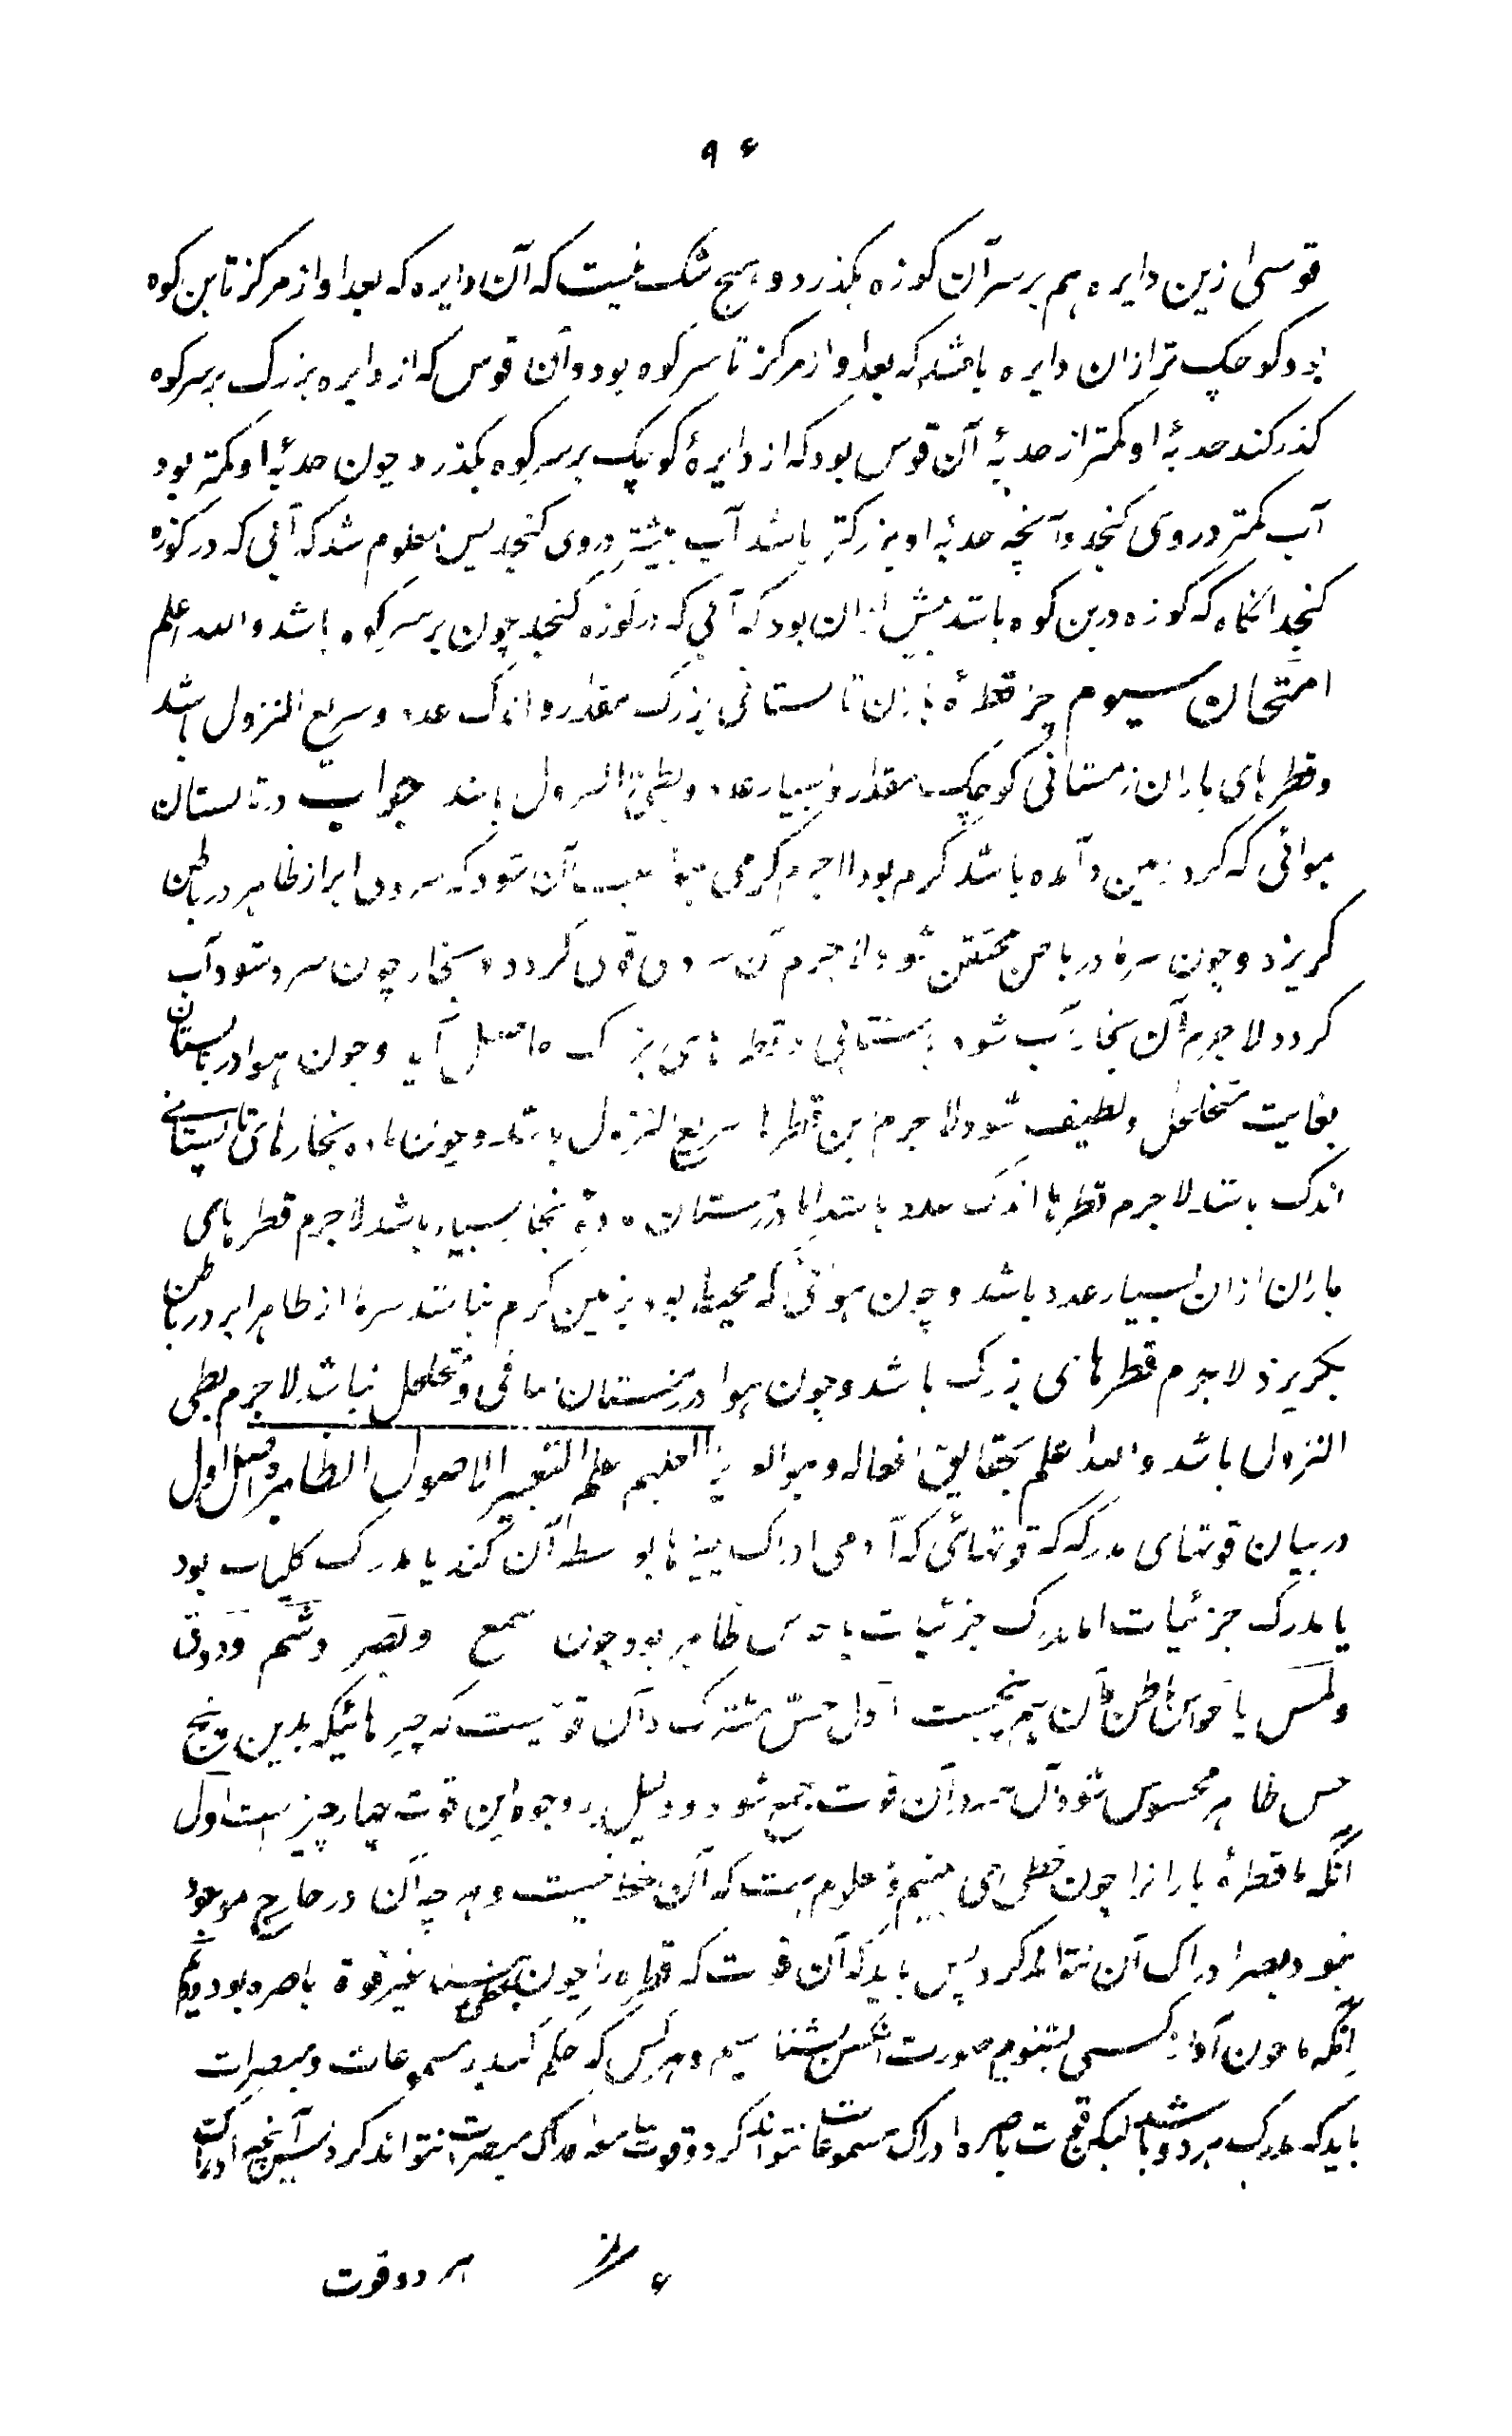 ۹۶
قوسی ازین دایره هم بر سر آن کوزه بکذرد و هیچ شک نیست که آن دایره که بعد او از مرکز تا بن کوه
بود کوچک تر ازان دایره باشد که بعد او از مرکز تا سر کوه بود و آن قوس که از دایره بزرک بر سر کوه
کذر کند حدبهٔ او کمتر از حدبهٔ آن قوس بود که از دایرهٔ کوچک بر سر کوه بکذرد چون حدبهٔ او کمتر بود
آب کمتر در وی کنجد و آنچه حدبهٔ او بزرکتر باشد آب بیشتر در وی کنجد پس معلوم شد که آبی که در کوزه
کنجد انکاه که کوزه در بن کوه باشد بیش ازان بود که آبی که در کوزه کنجد چون بر سر کوه باشد والله اعلم
امتحان سیوم چرا قطرهٔ باران تابستانی بزرک مقدار و اندک عدد و سریع النزول باشد
و قطرهای باران زمستانی کوچک مقدار و بسیار عدد و بطئ النزول باشد جواب در تابستان
هوائی که کرد زمین در آمده باشد کرم بود لاجرم کرمی هوا سبب آن شود که سردی ابر از ظاهر در باطن
کریزد و چون سرما در باطن محتقن شود لاجرم آن سردی قوی کردد و بخار چون سرد شود آب
کردد لاجرم آن بخار آب شود و قطرهای بزرک حاصل آید و چون هوا در تابستان
بغایت متخلخل و لطیف شود لاجرم این قطرها سریع النزول باشد و چون ماده بخارهای تابستانی
اندک باشد لاجرم قطرها اندک عدد باشد اما در زمستان مادهٔ بخار بسیار باشد لاجرم قطرهای
باران ازان بسیار عدد باشد و چون هوائی که محیط بود بزمین کرم نباشد سرما از ظاهر ابر در باطن
بکریزد لاجرم قطرهای بزرک باشد و چون هوا در زمستان صافی و متخلخل نباشد لاجرم بطی
النزول باشد والله اعلم بحقایق افعاله و هو العلیم علم التعبیر الاصول الظاهر اصل اول
در بیان قوتهای مدرکه که قوتهائی که آدمی ادراک چیزها بواسطه آن کند یا مدرک کلیات بود
یا مدرک جزئیات اما مدرک جزئیات یا حواس ظاهر بود چون سمع و بصر و شم و ذوق
و لمس یا حواس باطن و آن هم پنجست اول حس مشترک و آن قوتیست که چیزهائیکه بدین پنج
حس ظاهر محسوس شود آن همه در آن قوت جمع شود و دلیل بر وجود این قوت چهار چیز است اول
آنکه ما قطرهٔ باران را چون خطی همی بینیم و معلوم است که آن خط نیست و هر چه آن در خارج موجود
نبود بصر ادراک آن نتواند کرد پس باید که آن قوت که قطره را چون خطی بیند غیر قوة باصره بود دویم
آنکه ما چون آواز کسی بشنویم صورت آنکس بشناسیم و هر کس که حکم کند بر مسموعات و مبصرات
باید که مدرک هر دو باشد لیکن قوت باصره ادراک مسموعات نتواند کرد و قوت سامعه ادراک مبصرات نتواند کرد پس آنچه ادراک
هر دو قوت